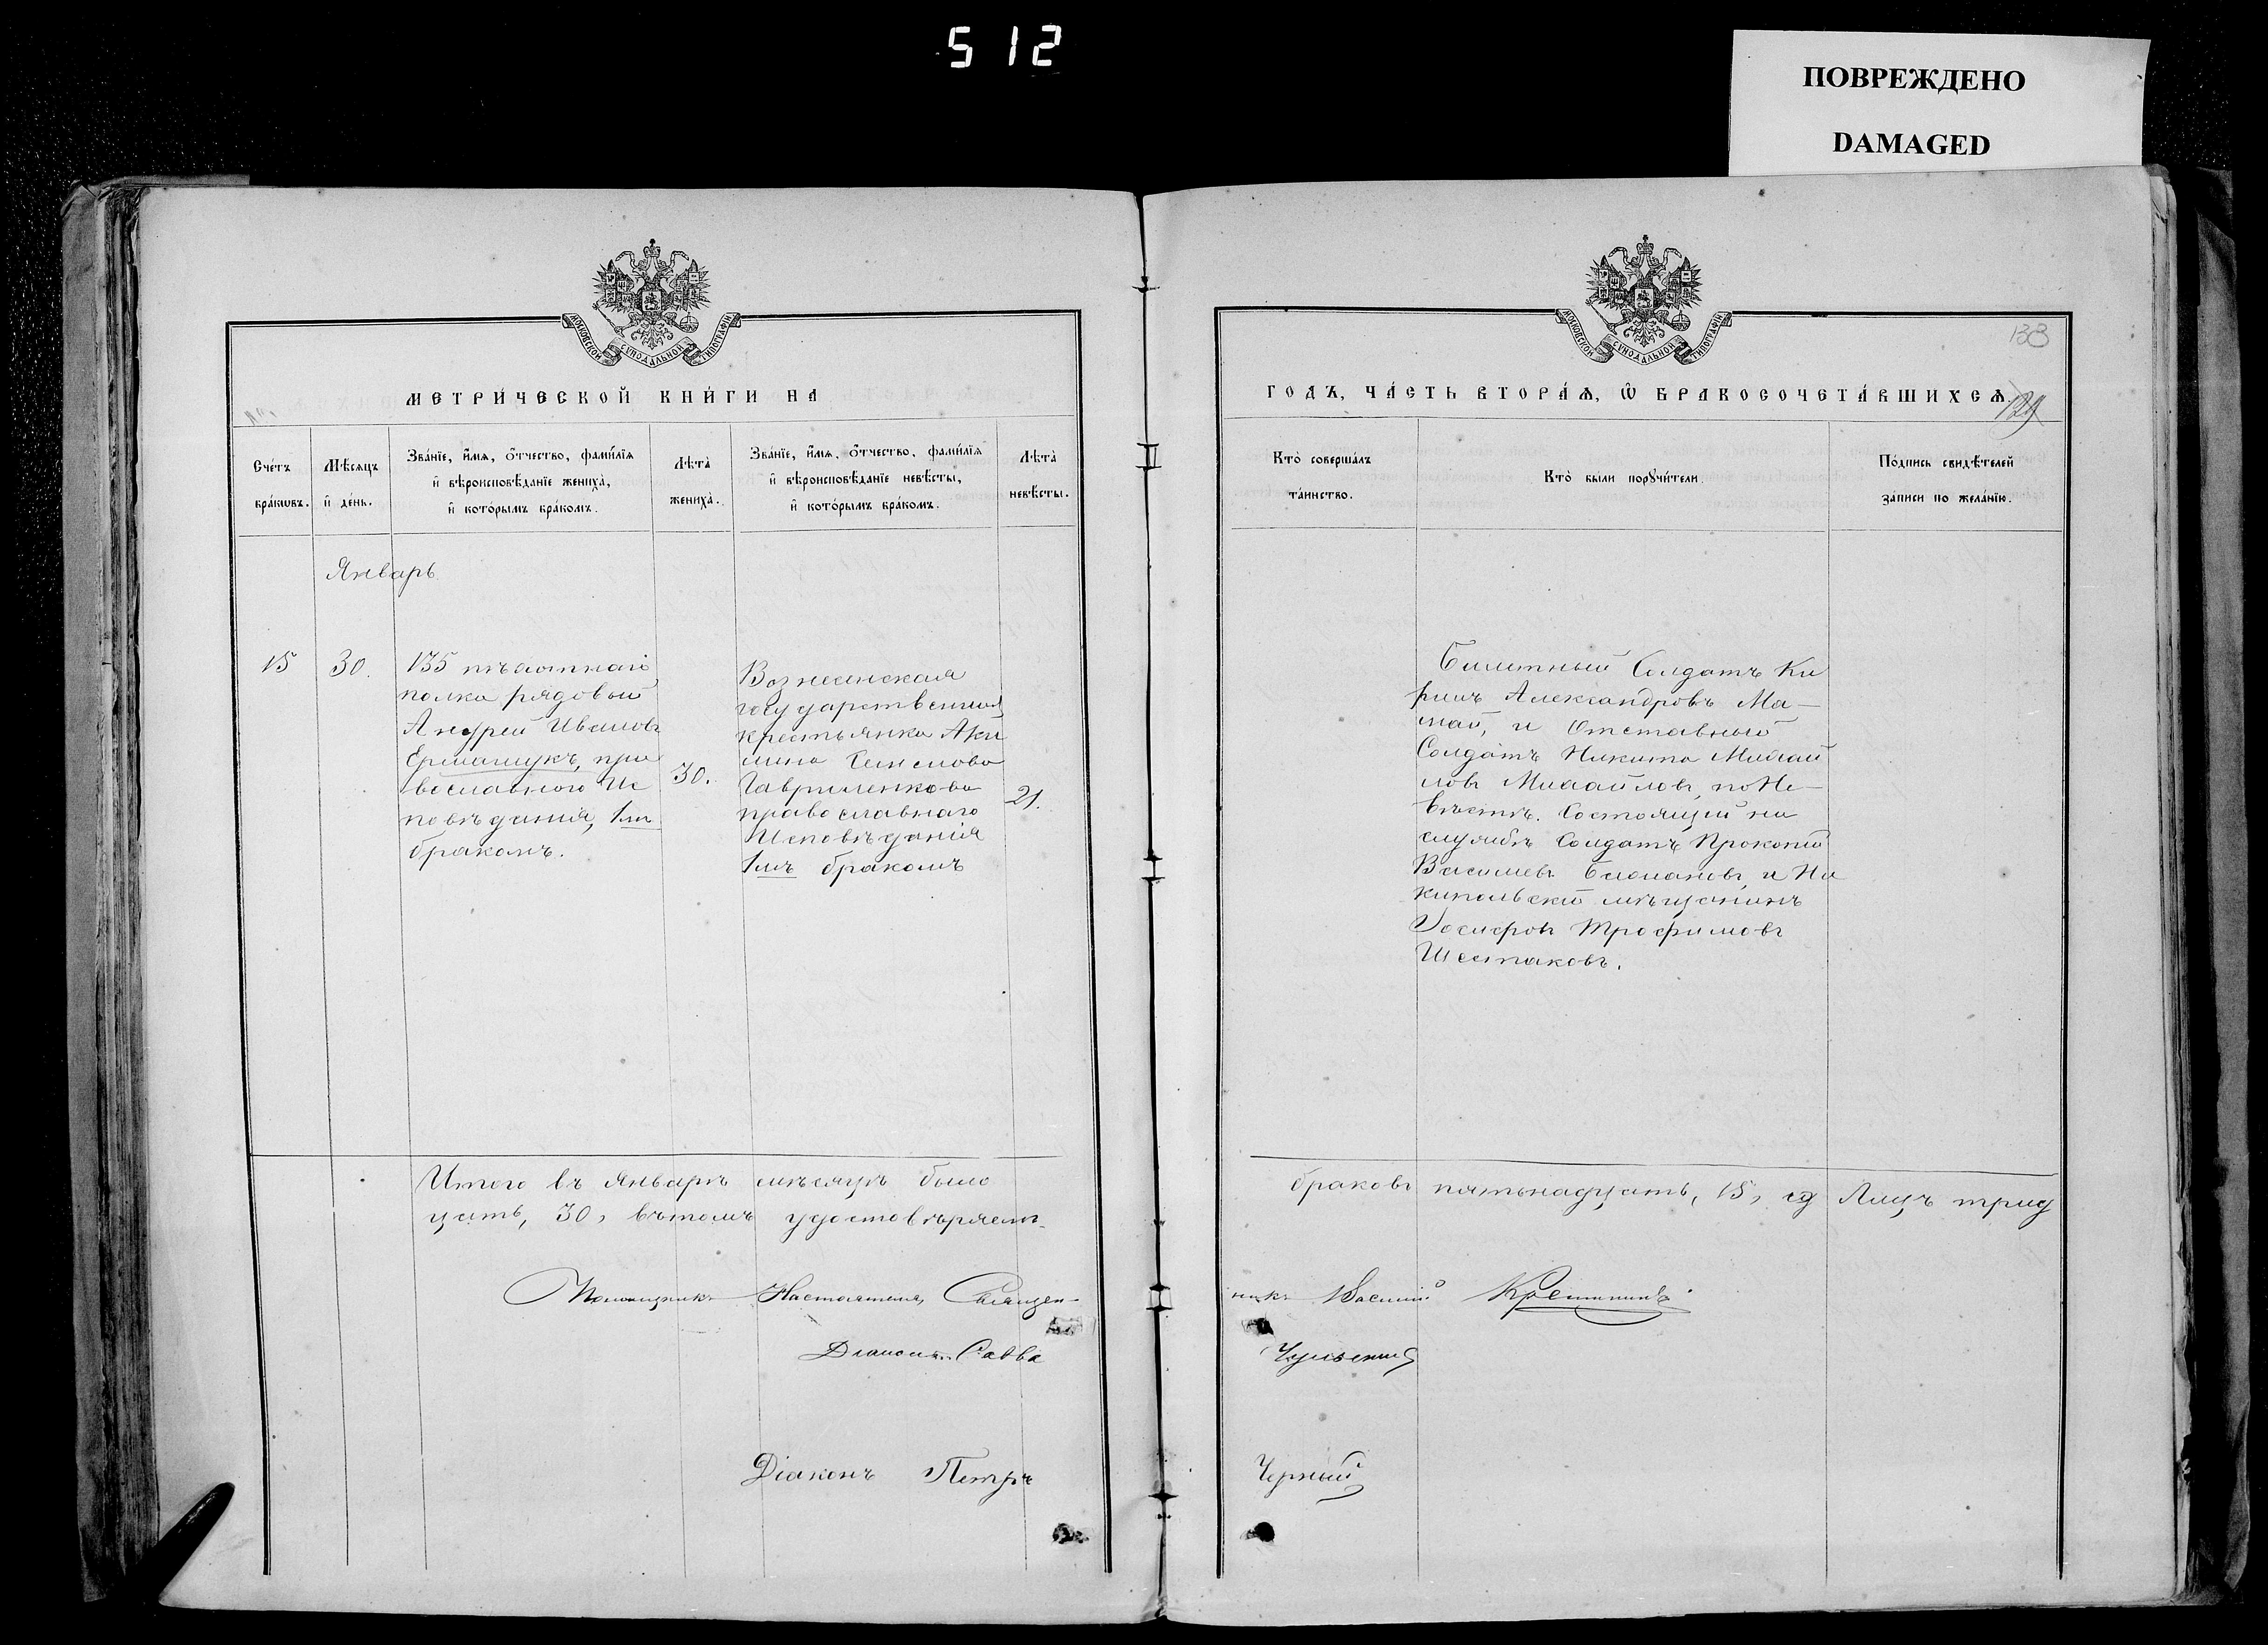 512
ПОВРЕЖДЕНО
DAMAGED
МОСКОВСКОЙ СѴНОДАЛЬНОЙ ТИПОГРАФІИ
МЕТРИ́ЧЕСКОЙ КНИ́ГИ НА
Сче́тъ бра́кѡвъ.
Мѣ́сяцъ и҆ де́нь.
Зва́нїе, и҆́мѧ, ѻ҆́тчество, фами́лїѧ и҆ вѣроисповѣ́данїе жениха̀, и҆ кото́рымъ бра́комъ.
Лѣта̀ жениха̀.
Зва́нїе, и҆́мѧ, ѻ҆́тчество, фами́лїѧ и҆ вѣроисповѣ́данїе невѣ́сты, и҆ кото́рымъ бра́комъ.
Лѣта̀ невѣ́сты.
Январь
15
30.
135 пѣхотнаго
полка рядовый
Андрей Ивановъ
Ермащукъ, пра
вославного Ис
повѣданія, 1мъ
бракомъ.
30.
Вознесенская
государственная
крестьянка Аки
лина
Гавриленкова
православнаго
Исповѣданія
1мъ бракомъ
21.
Итого въ Январѣ мѣсяцѣ было
цать, 30, въ томъ удостовѣряемъ.
Помощникъ Настоятеля, Священ-
Діаконъ Савва
Діаконъ Петръ
МОСКОВСКОЙ СѴНОДАЛЬНОЙ ТИПОГРАФІИ
133
129
ГОДЪ, ЧА́СТЬ ВТОРА́Ѧ, Ѽ БРАКОСОЧЕТА́ВШИХСѦ.
Кто̀ соверша́лъ та́инство.
Кто̀ бы́ли порꙋчи́тели.
По́дпись свидѣ́телей за́писи по жела́нїю.
Билетный Солдатъ Ки
рилъ Александровъ Ма-
май, и Отставный
Солдатъ Никита Михай
ловъ Михайловъ, по Не-
вѣстѣ. Состоящій на
службѣ Солдатъ Прокопій
Васильевъ и Ни
кипольскій мѣщанинъ
Іосифъ Трофимовъ
Шестаковъ.
браковъ пятьнадцать, 15, а Лицъ трид
никъ Василій
Черный